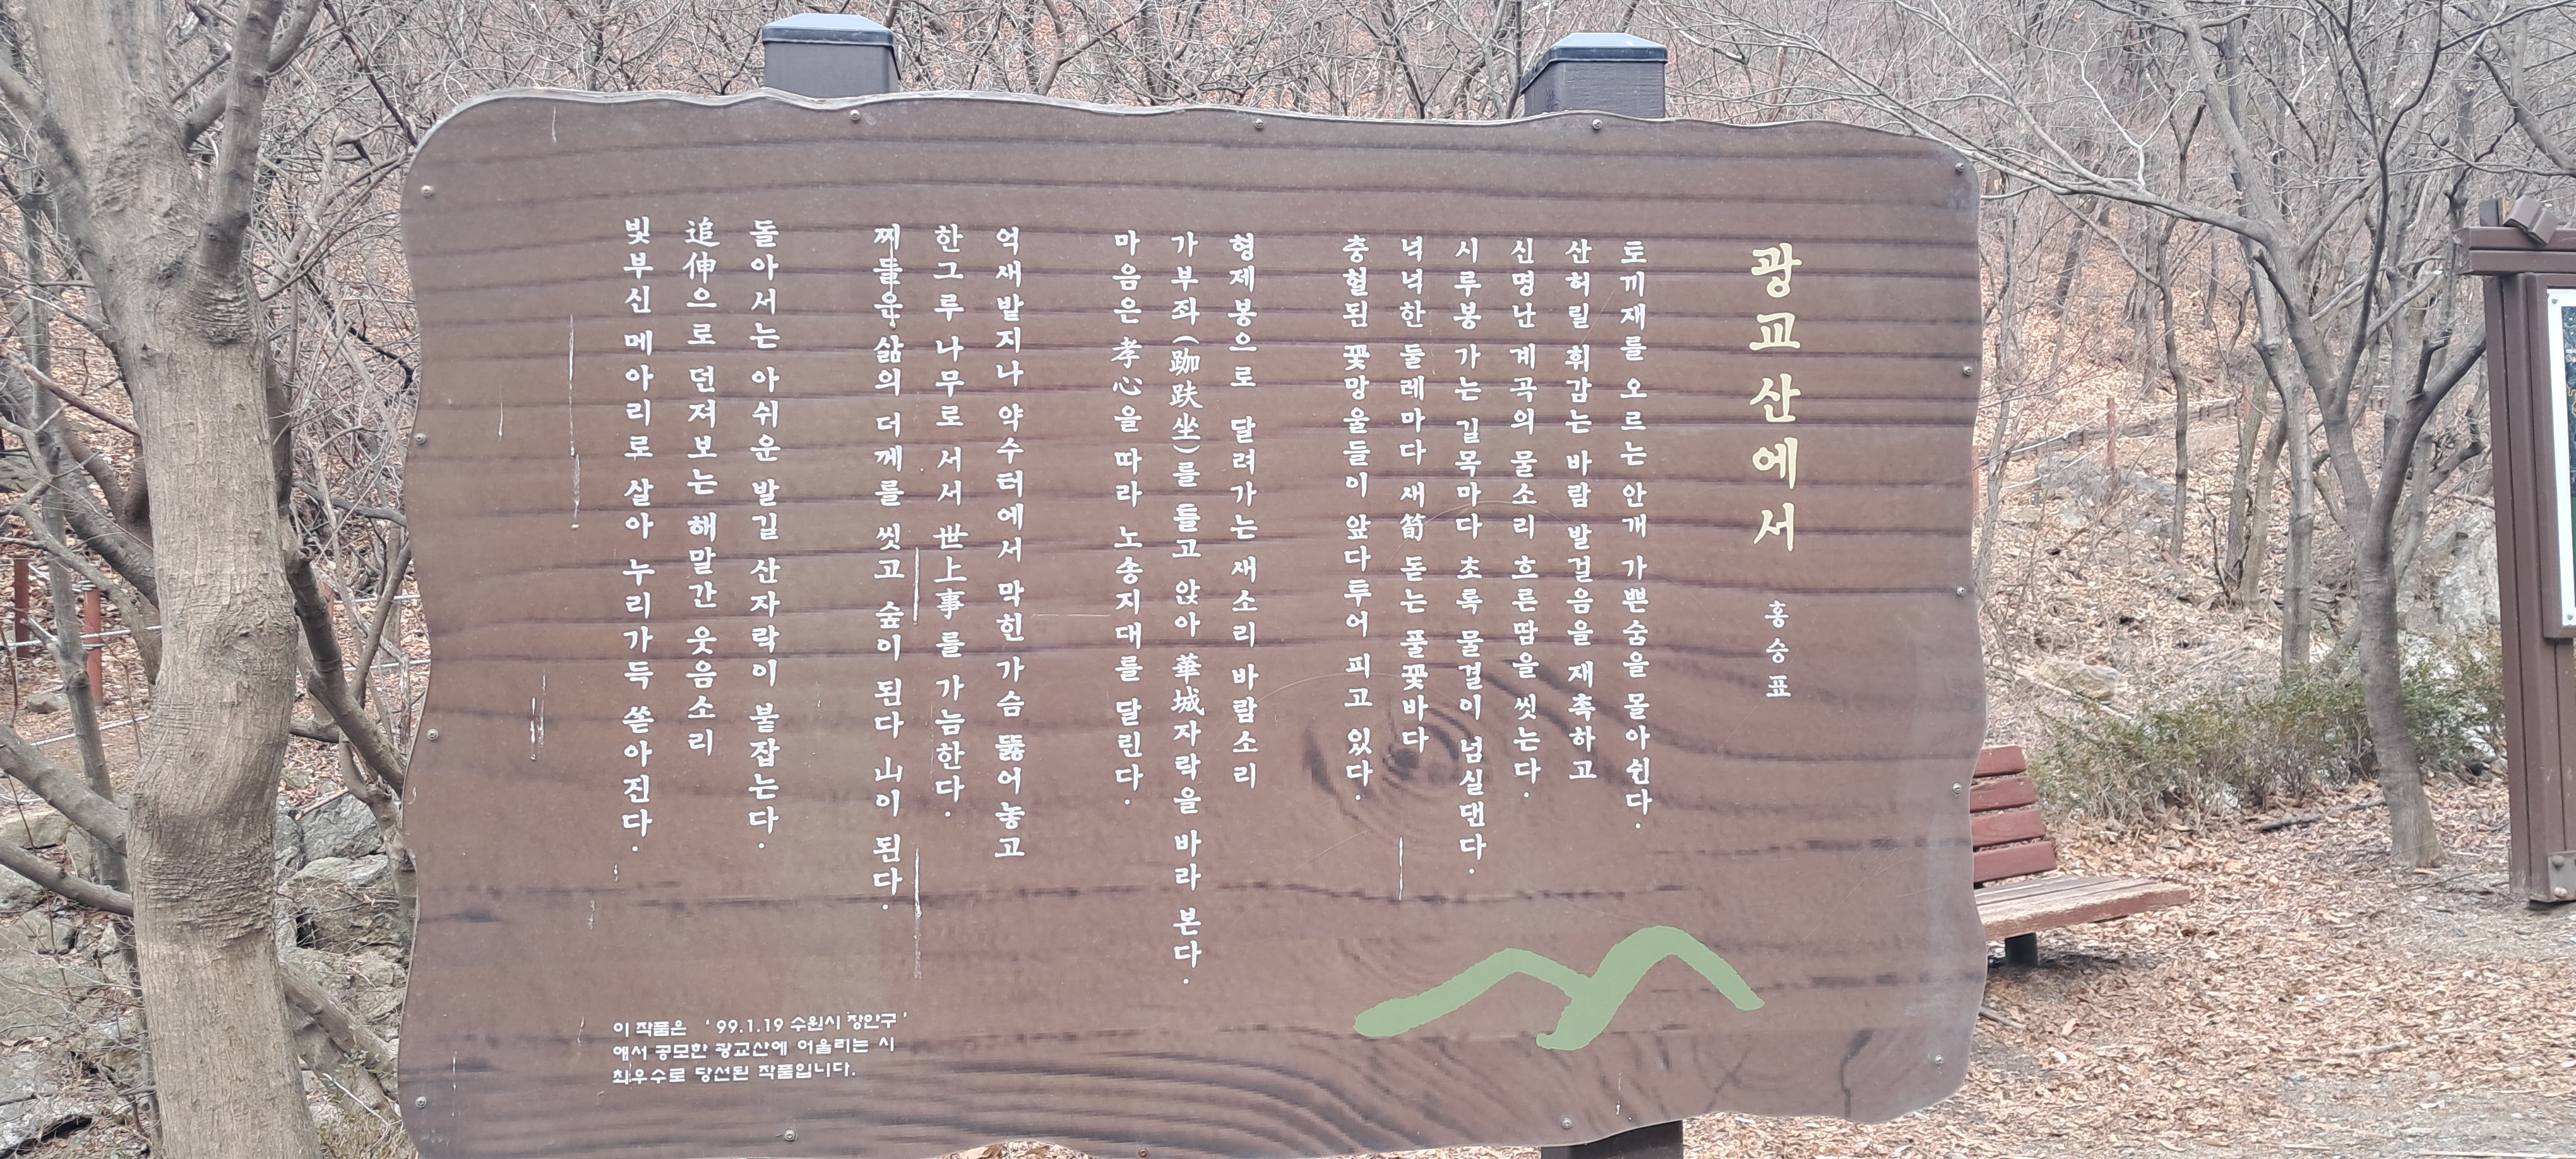 광교산에서
홍승표
토끼재를 오르는 안개 가쁜숨을 몰아쉰다.
산허릴 휘감는 바람 발걸음을 재촉하고
신명난 계곡의 물소리 흐른땀을 씻는다.
시루봉 가는 길목마다 초록 물결이 넘실댄다.
넉넉한 둘레마다 새筍 돋는 풀꽃바다
충혈된 꽃망울들이 앞다투어 피고 있다.
형제봉으로 달려가는 새소리 바람소리
가부좌(跏趺坐)를 틀고 앉아 華城자락을 바라 본다.
마음은 孝心을 따라 노송지대를 달린다.
억새밭지나 약수터에서 막힌 가슴 뚫어놓고
한그루 나무로 서서 世上事를 가늠한다.
찌들은 삶의 더께를 씻고 숲이 된다 山이 된다.
돌아서는 아쉬운 발길 산자락이 붙잡는다.
追伸으로 던져보는 해말간 웃음소리
빛부신 메아리로 살아 누리가득 쏟아진다.
이 작품은 '99.1.19 수원시 장안구'
에서 공모한 광교산에 어울리는 시
최우수로 당선된 작품입니다.